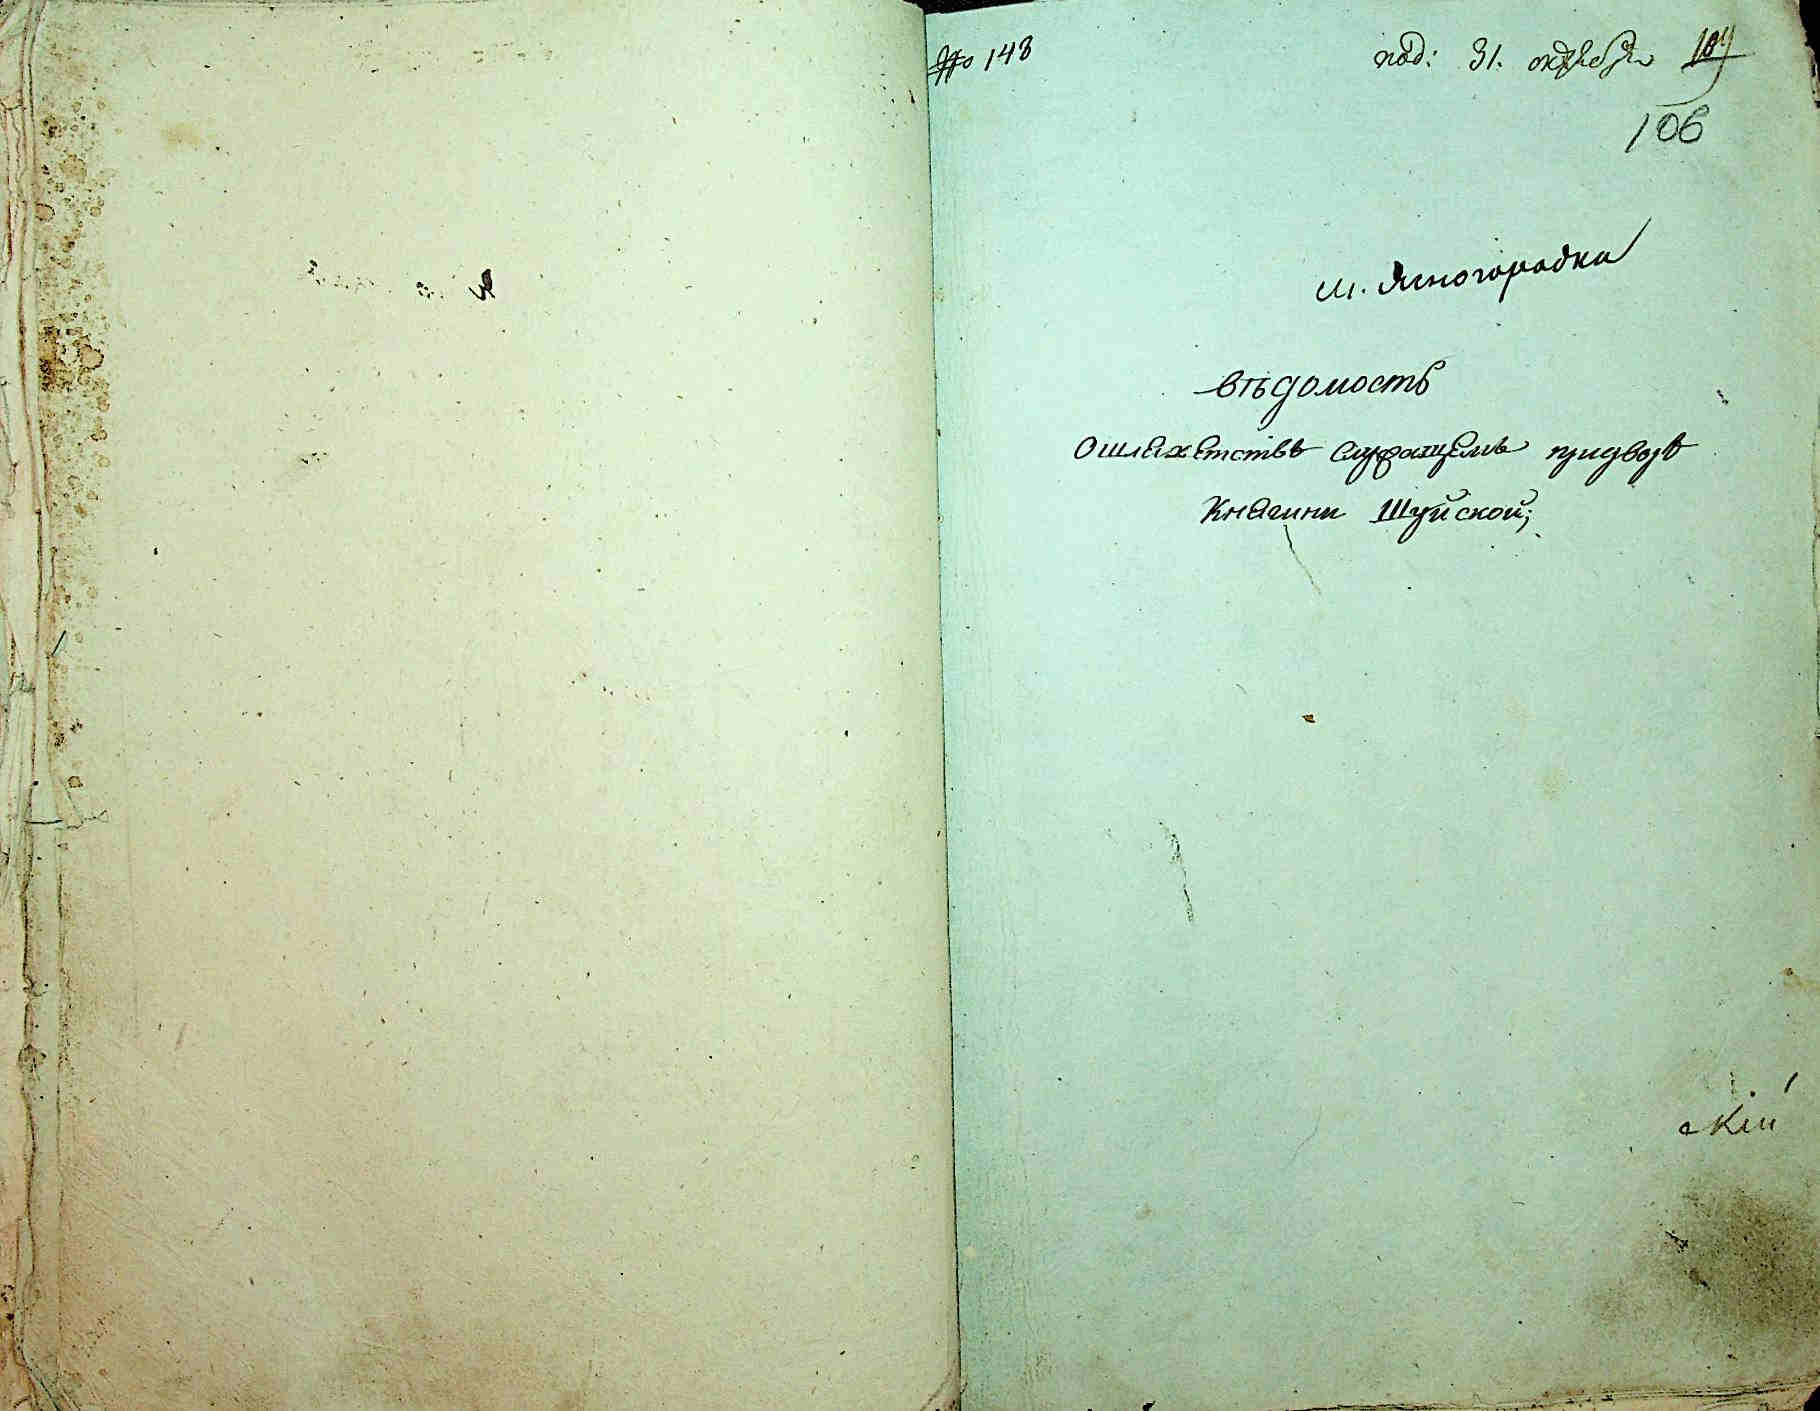 № 148
под: 31. октября
106
м. Ясногородка
вѣдомость
о шляхетствѣ служащемъ придворѣ
Княгини Шуйской;
скій